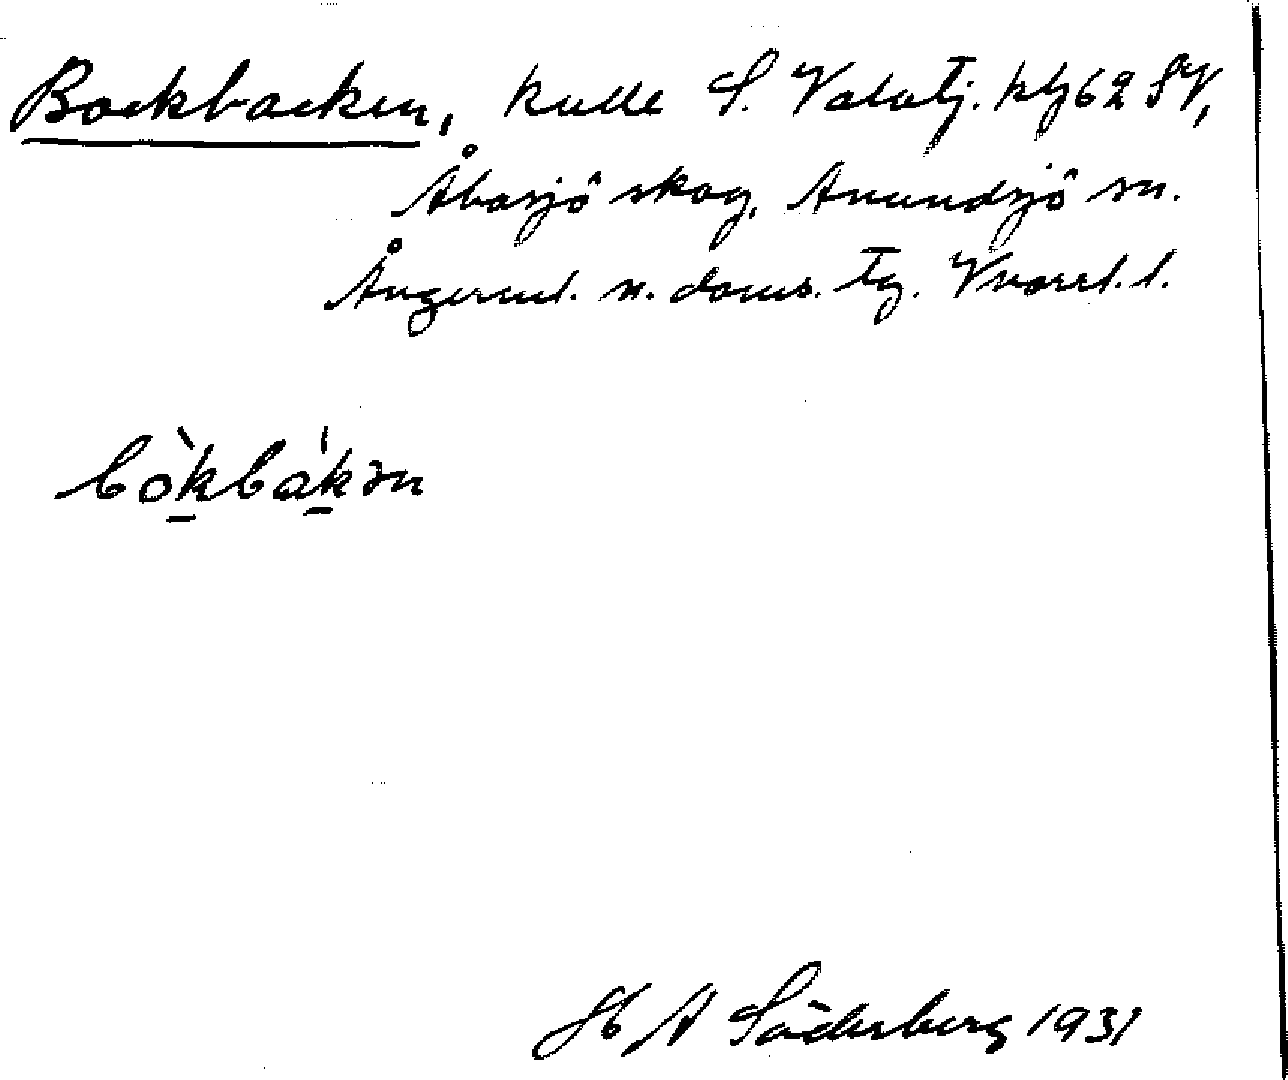 Bockbacken, kulle S. Valatj. kbl 62 SV,
Åbosjö skog, Anundsjö sn.
Ångerml. n. doms. tg. Vnorrl. l.
bòkbákən
H A Söderberg 1931